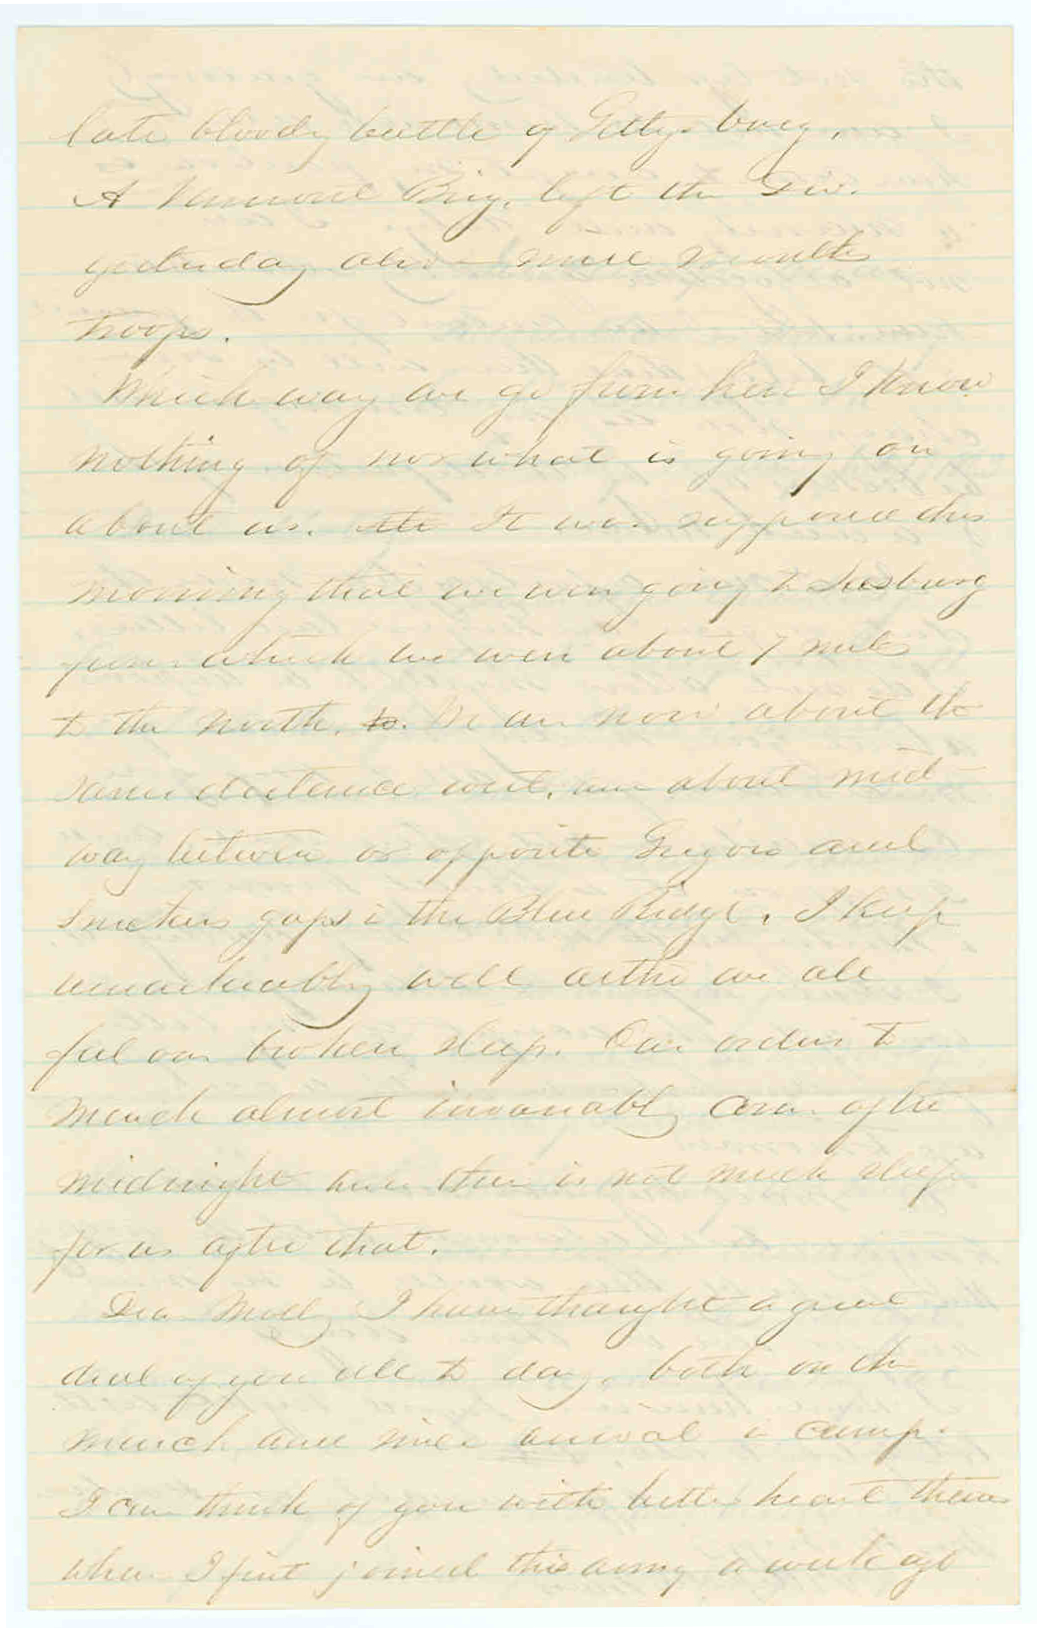 late bloody battle of Gettysburg.
A Vermont Brig. left the Div.
yesterday also nine months
troops.
Which way we go from here I know
nothing of nor what is going on
about us. It was supposed this
morning that we were going to Leesburg
from which we were about 7 miles
to the north. to. We are now about the
same distance west, are about mid-
way between or opposite Gregors and
Snickers gaps in the Blue Ridge. I keep
remarkably well altho we all
feel our broken sleep. Our orders to
march almost invariably come after
midnight and there is not much sleep
for us after that.
Dear Molly I have thought a great
deal of you all to day, both on the
march and since arrival in camp.
I can think of you with better heart than
when I first joined this army a week ago